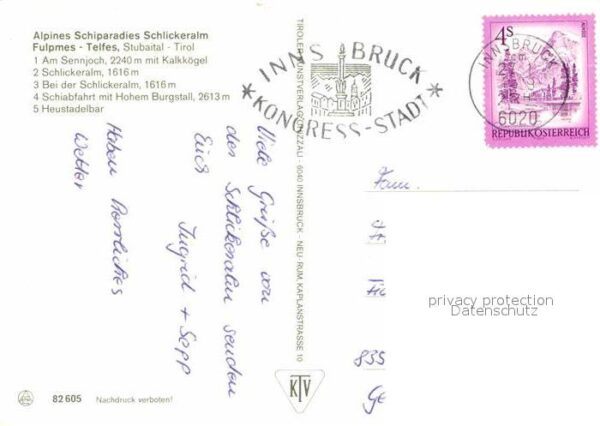 Alpines Schiparadies Schlickeralm
Fulpmes - Telfes, Stubaital - Tirol
1 Am Sennjoch, 2240 m mit Kalkkögel
2 Schlickeralm, 1616 m
3 Bei der Schlickeralm, 1616 m
4 Schiabfahrt mit Hohem Burgstall, 2613 m
5 Heustadelbar
Viele Grüße von
der Schlickeralm senden
Euch
Ingrid + Sepp
Haben herrliches
Wetter
82605 Nachdruck verboten!
TIROLER KUNSTVERLAG CHIZZALI - 6040 INNSBRUCK - NEU-RUM, KAPLANSTRASSE 10
KTV
INNSBRUCK
*KONGRESS-STADT*
INNSBRUCK
6020
4S
REPUBLIK ÖSTERREICH
Fam.
privacy protection
Datenschutz
835
Ge